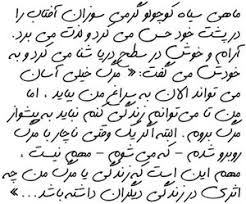 ماهی سیاه کوچولو گرمی سوزان آفتاب را
در پشت خود حس می کرد و لذت می برد.
آرام و خوش در سطح دریا شنا می کرد و به
خودش می گفت: « مرگ خیلی آسان
می تواند الان به سراغ من بیاید ، اما
من تا می توانم زندگی کنم نباید به پیشواز
مرگ بروم . البته اگر یک وقتی ناچار با مرگ
روبرو شدم - که می شوم - مهم نیست ،
مهم این است که زندگی یا مرگ من چه
اثری در زندگی دیگران داشته باشد...»